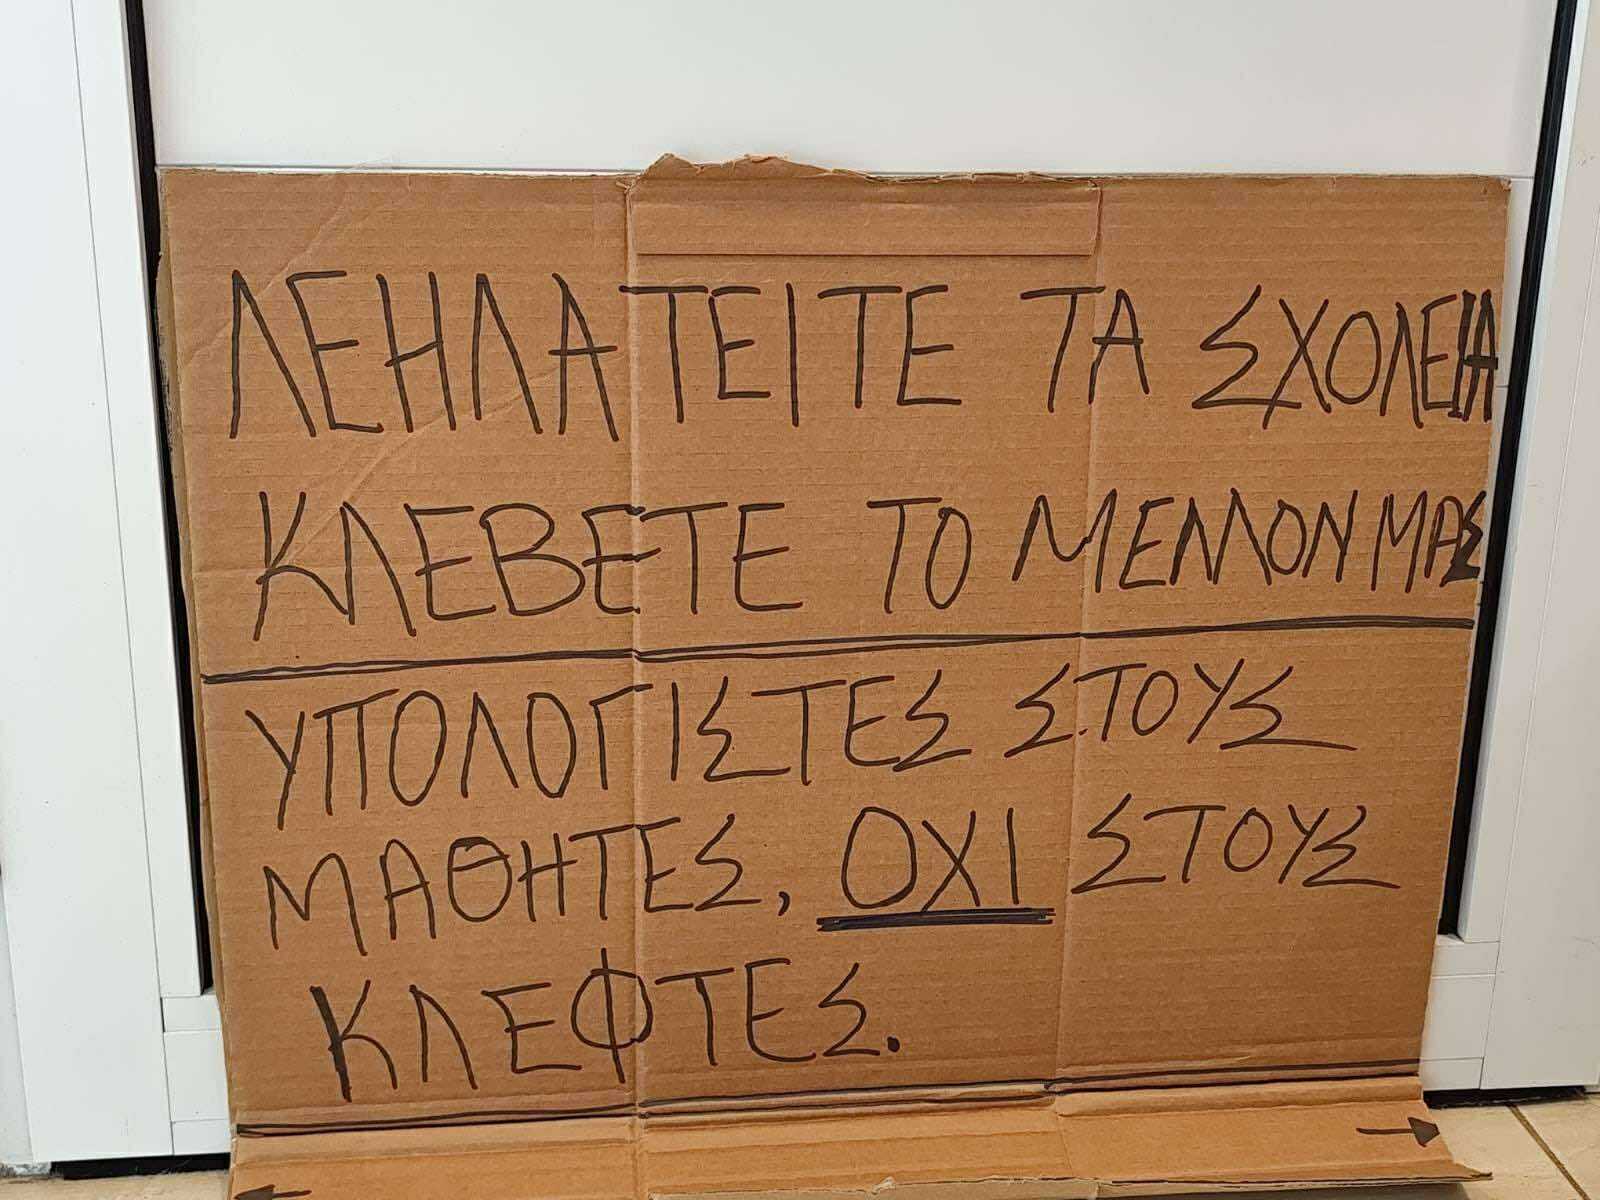 ΛΕΗΛΑΤΕΙΤΕ ΤΑ ΣΧΟΛΕΙΑ
ΚΛΕΒΕΤΕ ΤΟ ΜΕΛΛΟΝ ΜΑΣ
ΥΠΟΛΟΓΙΣΤΕΣ ΣΤΟΥΣ
ΜΑΘΗΤΕΣ, ΟΧΙ ΣΤΟΥΣ
ΚΛΕΦΤΕΣ.